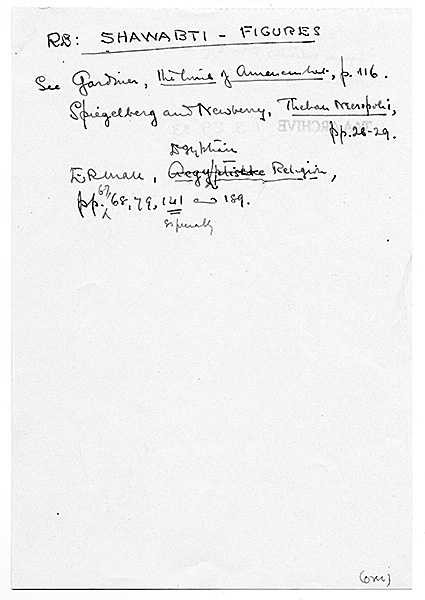 RB: SHAWABTI - FIGURES
See Gardiner, The Tomb of Amenemhet, p. 116.
Spiegelberg and Newberry, Theban Necropolis,
pp. 28-29.
Egyptian
ERMAN, Aegyptische Religion,
pp. 67, 68, 79, 141 and 189.
especially